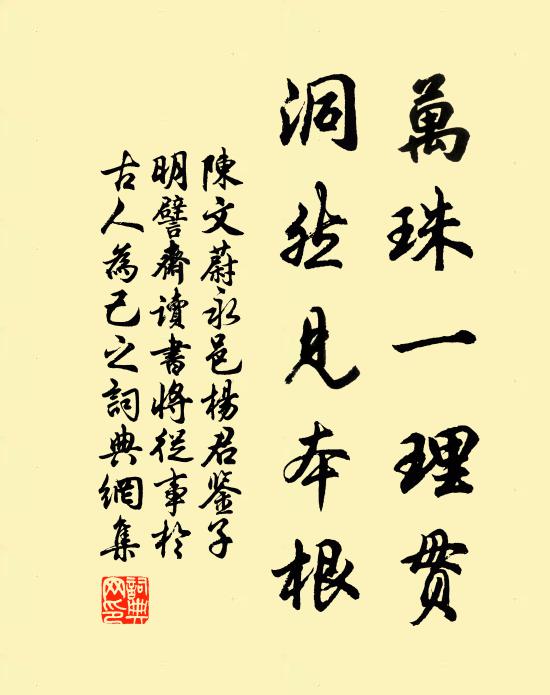 萬珠一理貫
洞然見本根
陳文蔚永邑楊君鉴子
明譬齋讀書將從事於
古人為己之詞典網集
詞典網印